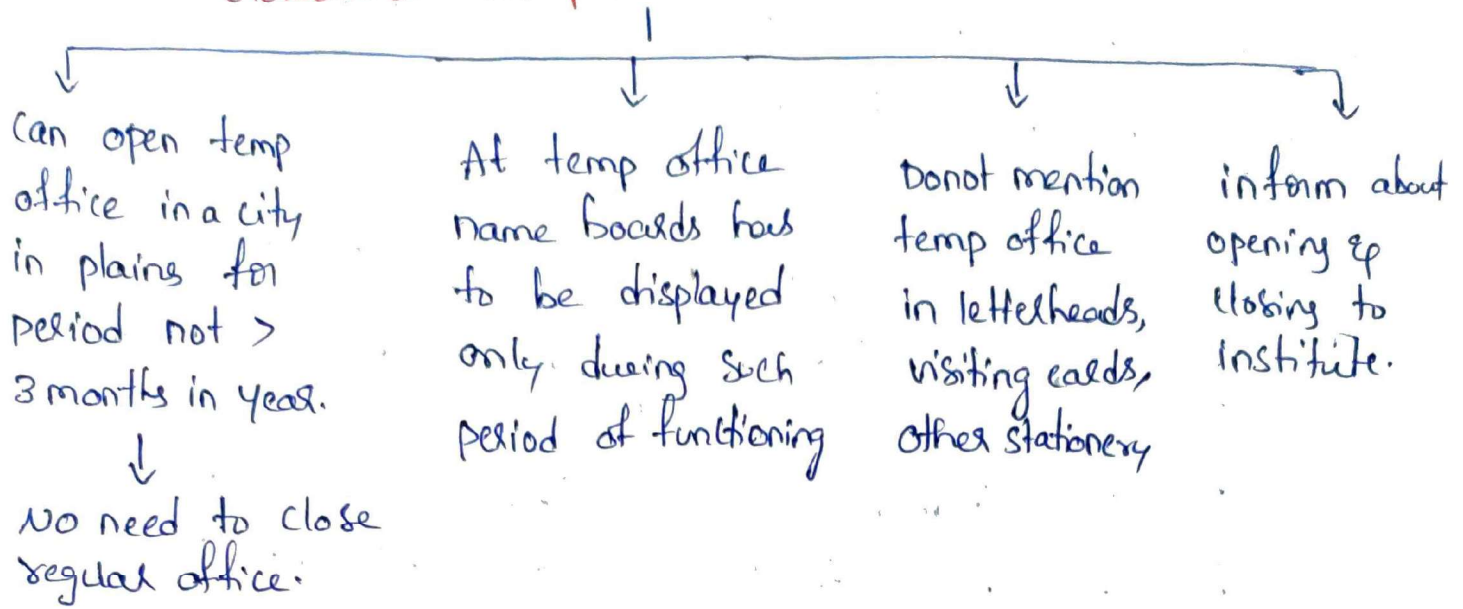 Can open temp
office in a city
in plains for
period not >
3 months in year.
No need to close
regular office.
At temp office
name boards has
to be displayed
only during such
period of functioning
Donot mention
temp office
in letterheads,
visiting cards,
other stationery
inform about
opening &
closing to
institute.